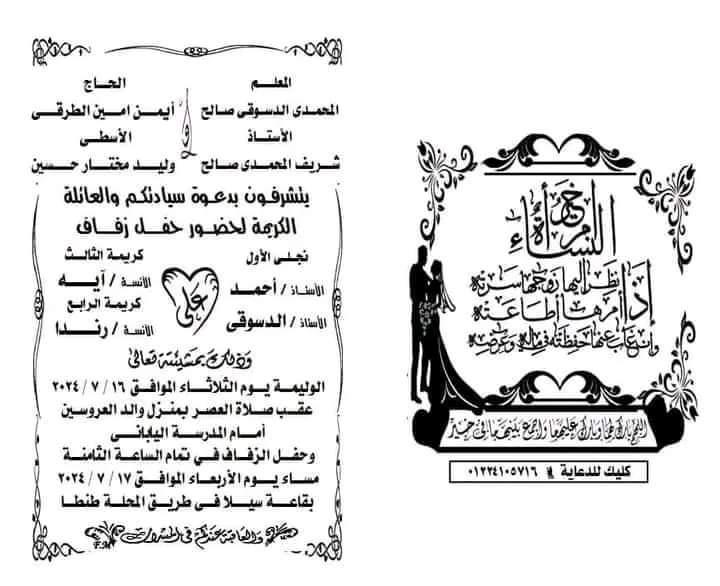 المعلم
الحاج
المحمدى الدسوقى صالح
أيمن امين الطرقى
و
الأستاذ
الأسطى
شريف المحمدى صالح
وليد مختار حسين
يتشرفون بدعوة سيادتكم والعائلة
الكريمة لحضور حفل زفاف
نجلى الأول
كريمة الثالث
الأستاذ / أحمد
الآنسة / آيه
على
كريمة الرابع
الأستاذ / الدسوقى
الآنسة / رندا
وذلك بمشيئة تعالى
الوليمة يوم الثلاثاء الموافق ١٦ / ٧ / ٢٠٢٤
عقب صلاة العصر بمنزل والد العروسين
أمام المدرسة اليابانى
وحفل الزفاف فى تمام الساعة الثامنة
مساء يوم الأربعاء الموافق ١٧ / ٧ / ٢٠٢٤
بقاعة سيلا فى طريق المحلة طنطا
والعاقبة عندكم فى المسرات
F.M
خير
النساء
امرأة
إذا نظر إليها زوجها سرته
إذا أمرها أطاعته
وإن غاب عنها حفظته فى ماله وعرضه
اللهم بارك لهما وبارك عليهما واجمع بينهما فى خير
كليك للدعاية ٠١٢٢٤١٠٥٧١٦